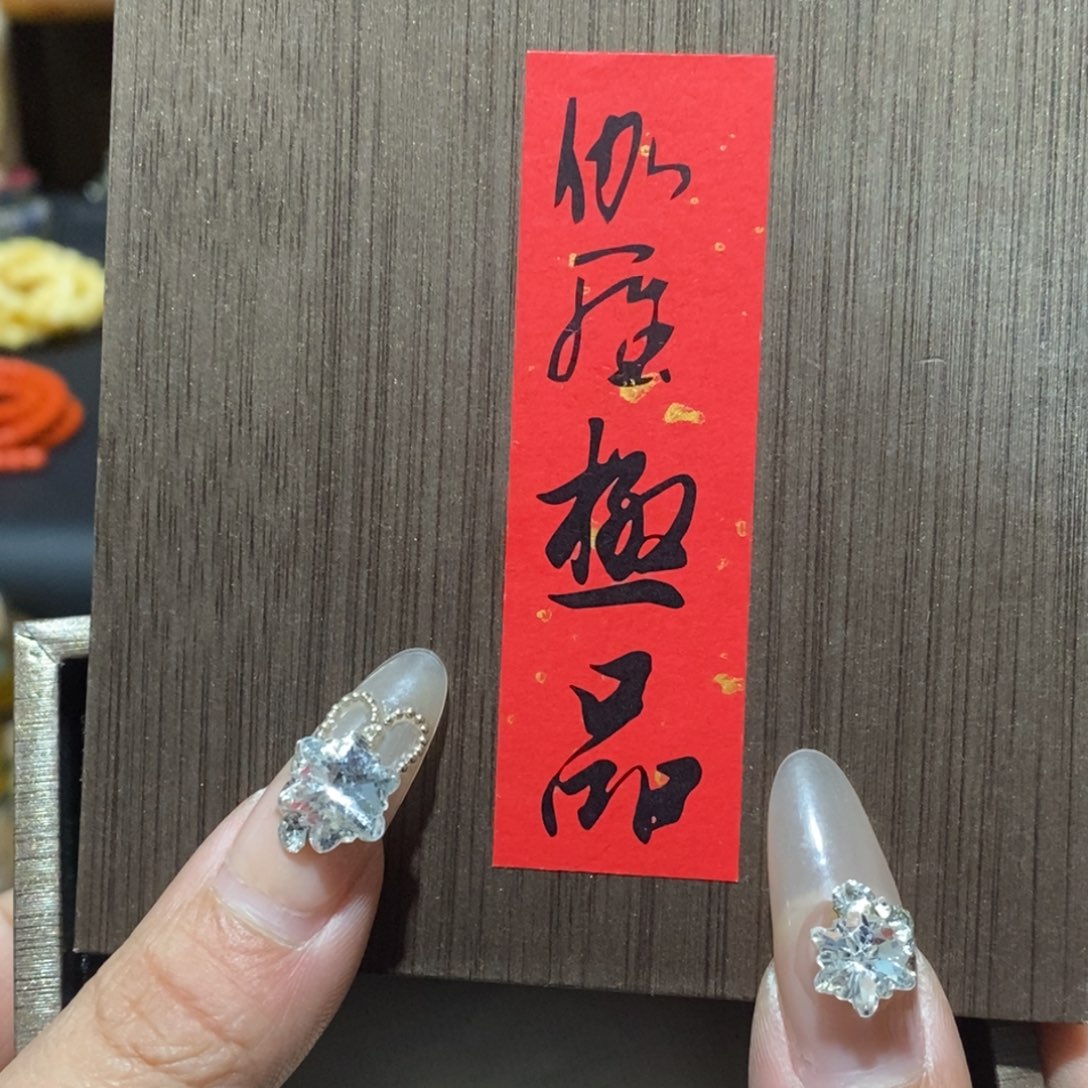 伽羅極品